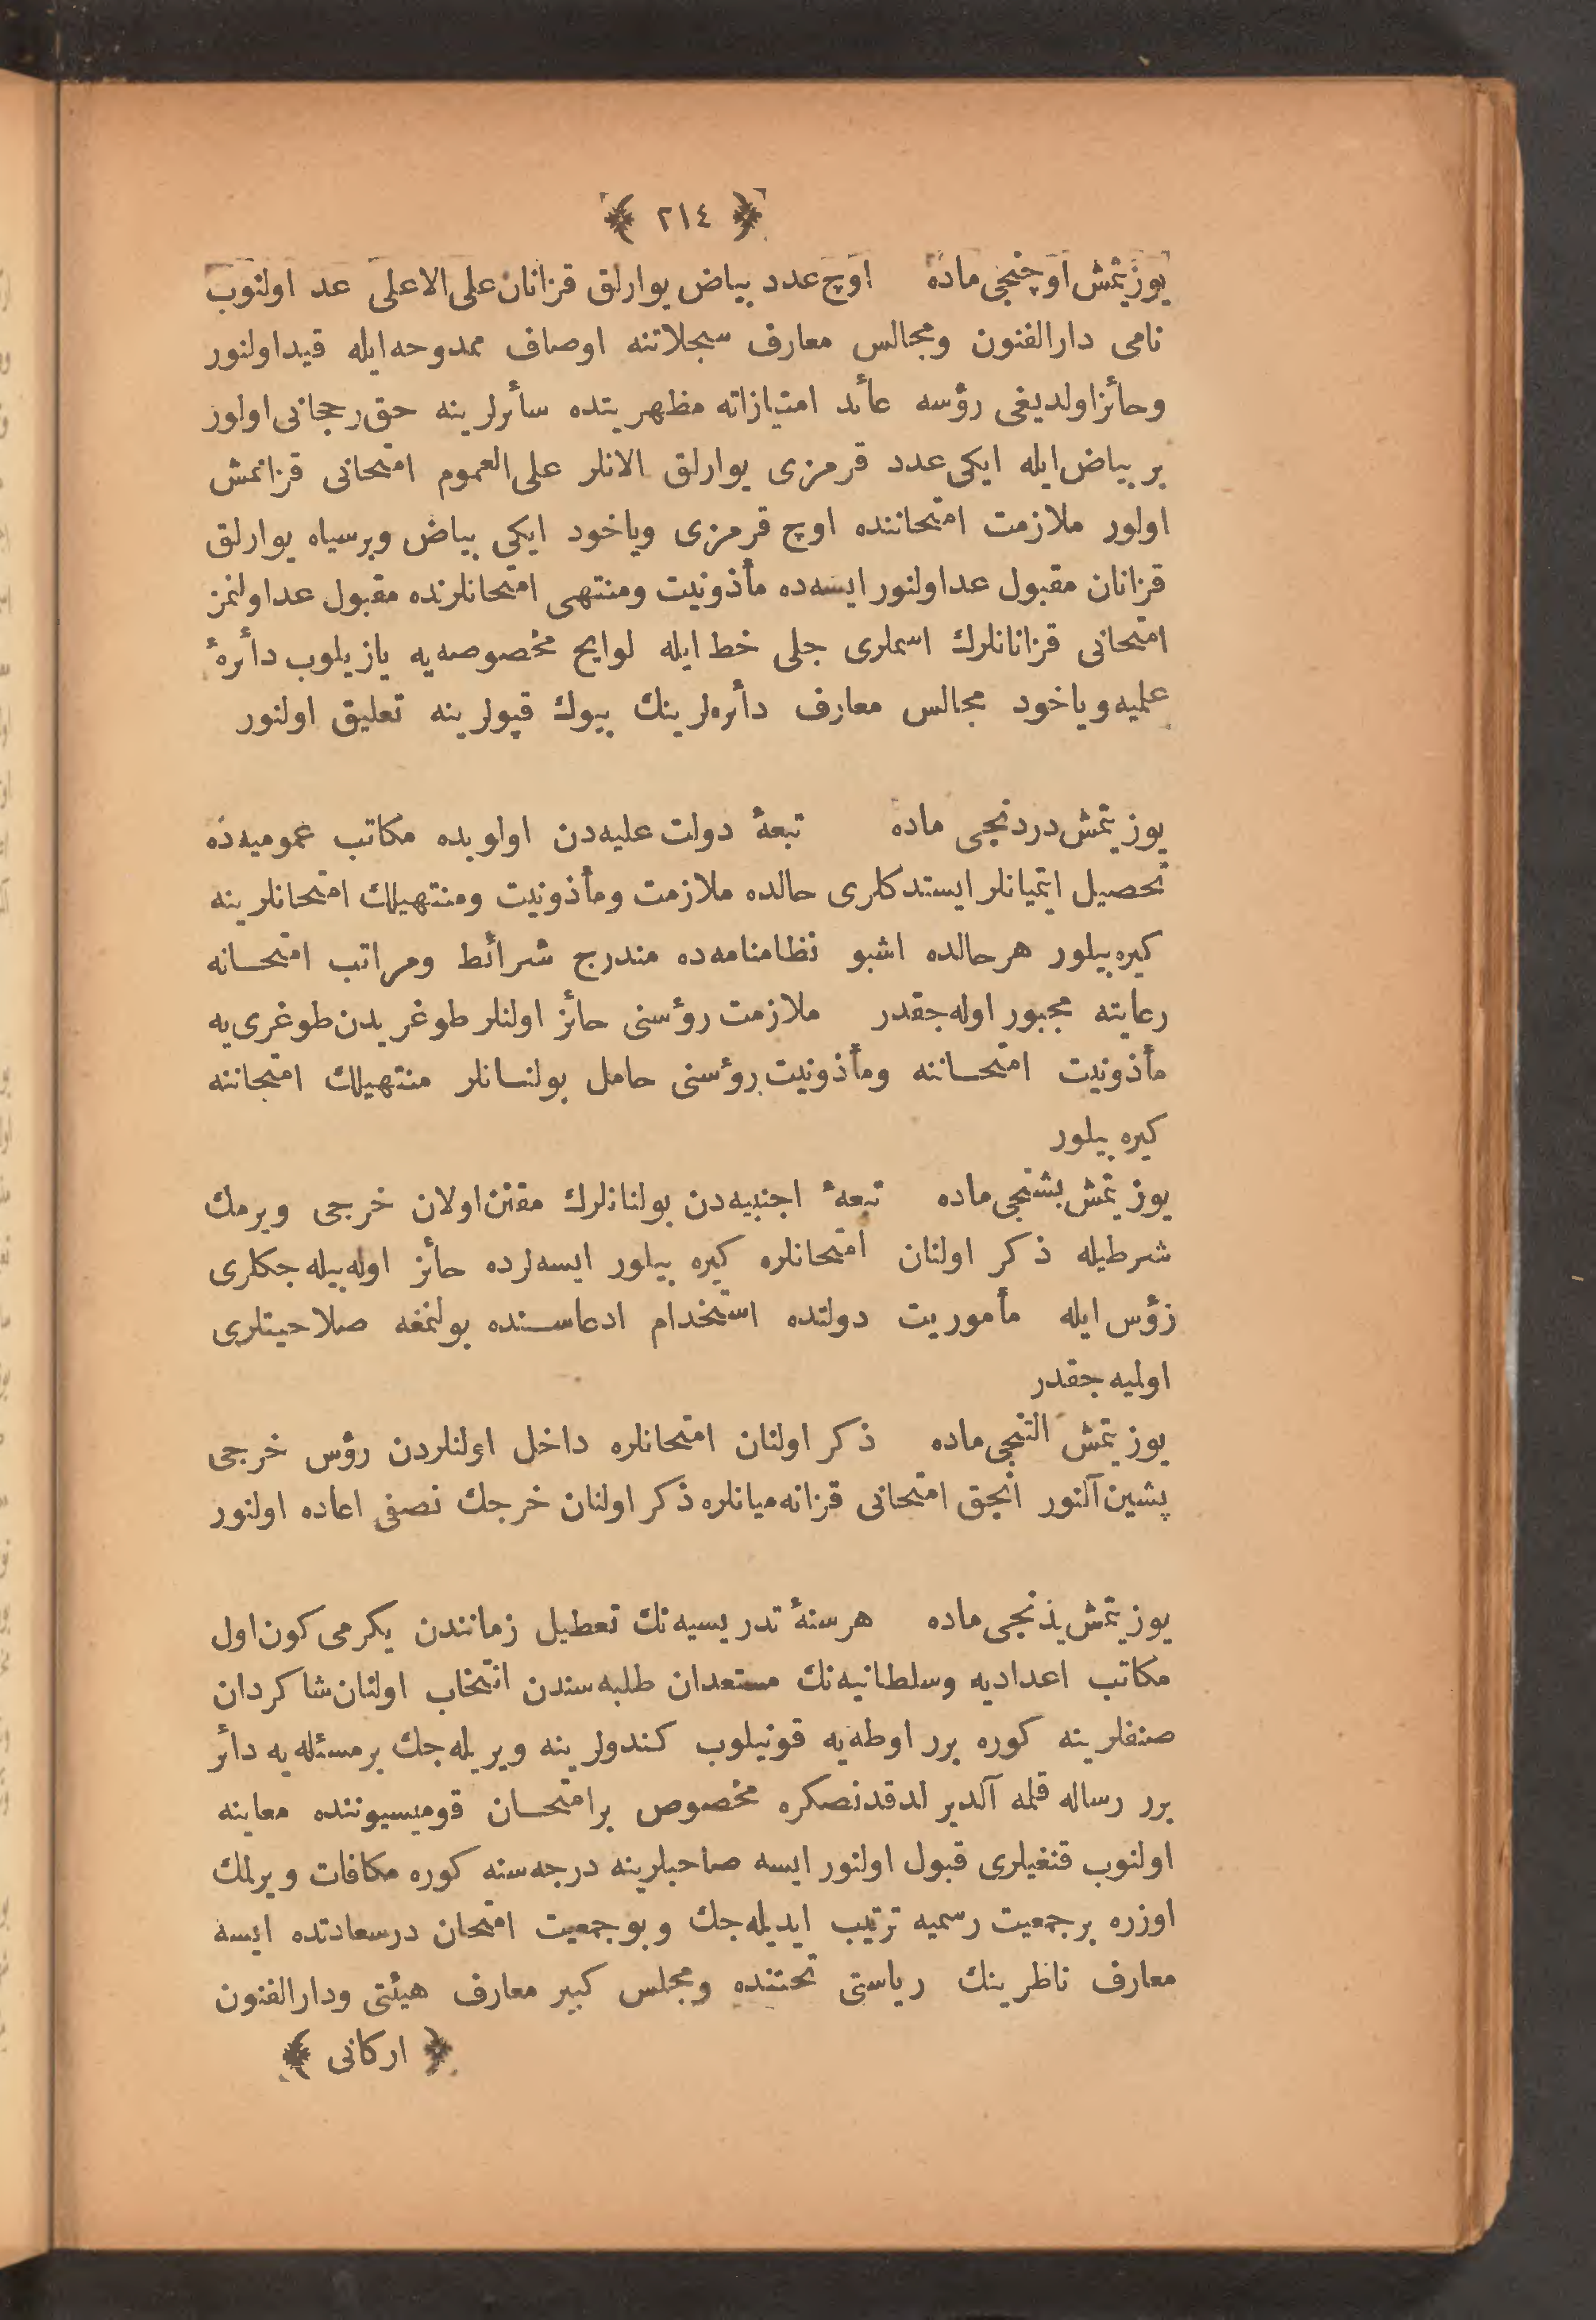 ﴿ ٢١٤ ﴾
يوز يتمش اوچنجى ماده اوچ عدد بياض يوارلق قزانان على الاعلى عد اولنوب
نامى دارالفنون ومجالس معارف سجلاتنه اوصاف ممدوحه ايله قيد اولنور
وحائز اولديغى رؤسه عائد امتيازاته مظهريتده سائرلرينه حق رجحانى اولور
بر بياض ايله ايكى عدد قرمزى يوارلق الانلر على العموم امتحانى قزانمش
اولور ملازمت امتحاننده اوچ قرمزى وياخود ايكى بياض وبرسياه يوارلق
قزانان مقبول عد اولنور ايسه ده مأذونيت ومنتهى امتحانلرنده مقبول عد اولنمز
امتحانى قزانانلرك اسملرى جلى خط ايله لوايح مخصوصه يه يازيلوب دائرۀ
علميه وياخود مجالس معارف دائره لرينك بيوك قپولرينه تعليق اولنور
يوز يتمش دردنجى ماده تبعۀ دولت عليه دن اولوبده مكاتب عموميه ده
تحصيل ايتميانلر ايستدكلرى حالده ملازمت ومأذونيت ومنتهيلك امتحانلرينه
كيره بيلور هر حالده اشبو نظامنامه ده مندرج شرائط ومراتب امتحانه
رعايته مجبور اوله جقدر ملازمت رؤسنى حائز اولنلر طوغريدن طوغرى يه
مأذونيت امتحاننه ومأذونيت رؤسنى حامل بولنانلر منتهيلك امتحاننه
كيره بيلور
يوز يتمش بشنجى ماده تبعۀ اجنبيه دن بولنانلرك مقنن اولان خرجى ويرمك
شرطيله ذكر اولنان امتحانلره كيره بيلور ايسه لرده حائز اوله بيله جكلرى
رؤس ايله مأموريت دولتده استخدام ادعاسنده بولنمغه صلاحيتلرى
اوليه جقدر
يوز يتمش التنجى ماده ذكر اولنان امتحانلره داخل اولنلردن رؤس خرجى
پشين آلنور انجق امتحانى قزانه ميانلره ذكر اولنان خرجك نصفى اعاده اولنور
يوز يتمش يدنجى ماده هر سنۀ تدريسيه نك تعطيل زمانندن يكرمى كون اول
مكاتب اعداديه وسلطانيه نك مستعدان طلبه سندن انتخاب اولنان شاكردان
صنفلرينه كوره برر اوطه يه قونيلوب كندولرينه ويريله جك بر مسئله يه دائر
برر رساله قلمه آلديرلدقدنصكره مخصوص بر امتحان قوميسيوننده معاينه
اولنوب قنغيلرى قبول اولنور ايسه صاحبلرينه درجه سنه كوره مكافات ويرلمك
اوزره بر جمعيت رسميه ترتيب ايديله جك وبو جمعيت امتحان درسعادتده ايسه
معارف ناظرينك رياستى تحتنده ومجلس كبير معارف هيئتى ودارالفنون
﴿ اركانى ﴾